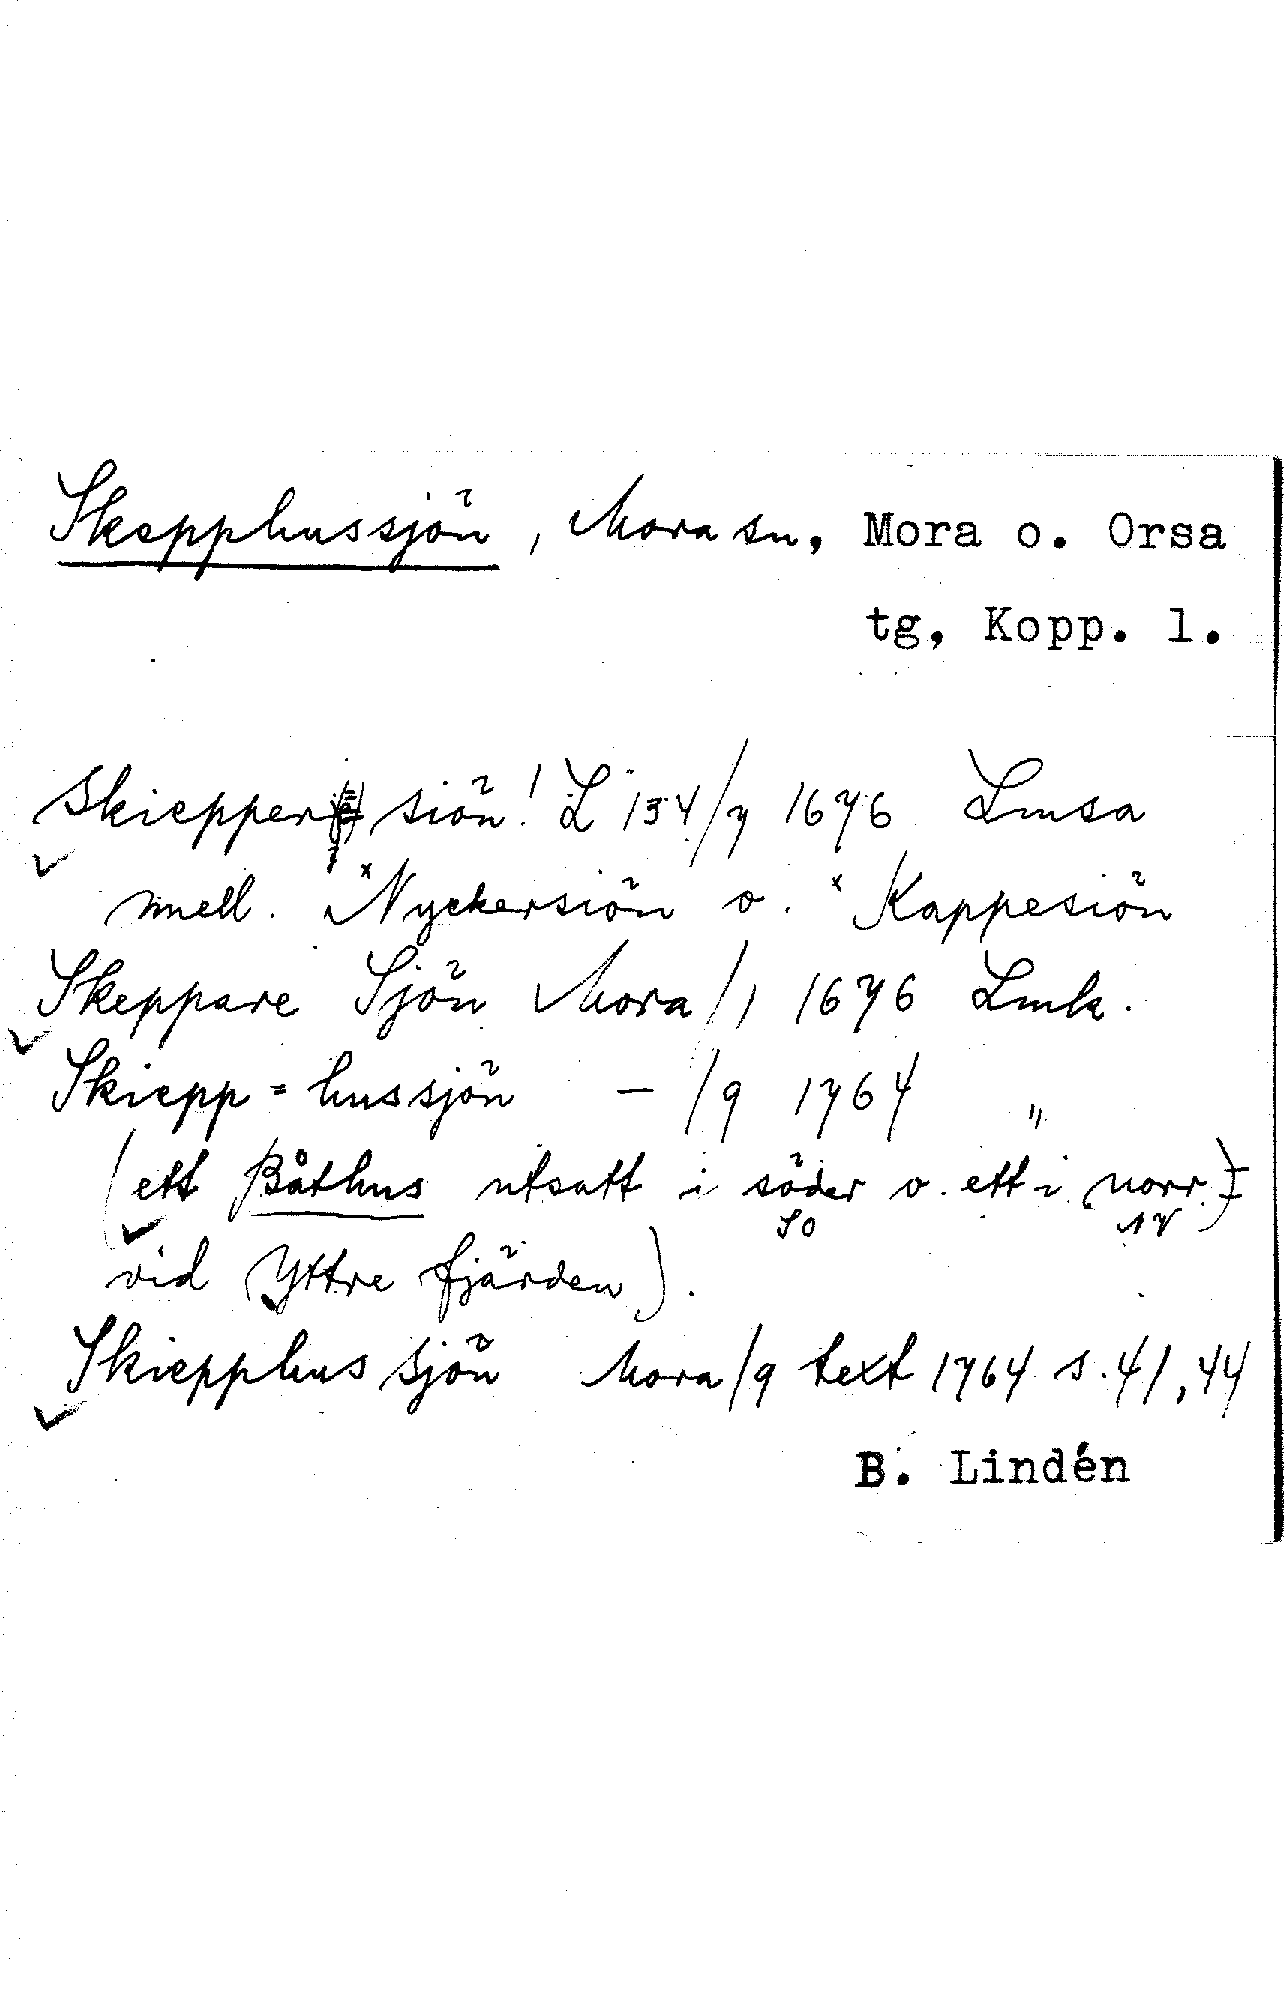 Skepphussjön, Mora sn, Mora o. Orsa
tg, Kopp. l.
Skiepper siön! L 134/7 1676 Lmsa
mell. ˣNyckersiön o. ˣKappesiön
Skeppare Sjön Mora/1 1676 Lmk.
Skiepp=hussjön — /9 1764 "
(ett Båthus utsatt i söder o. ett i norr)
SO NV
vid Yttre fjärden).
Skiepphus sjön Mora/9 text 1764 s. 41, 44
B. Lindén